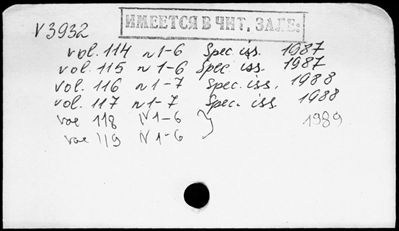 V 3932
ИМЕЕТСЯ В ЧИТ. ЗАЛЕ:
vol. 114 n 1-6 Spec. iss. 1987
vol. 115 n 1-6 Spec iss. 1987
vol. 116 n 1-7 Spec. iss. 1988
vol. 117 n 1-7 Spec. iss. 1988
vol 118 N 1-6 } 1989
vol 119 N 1-6